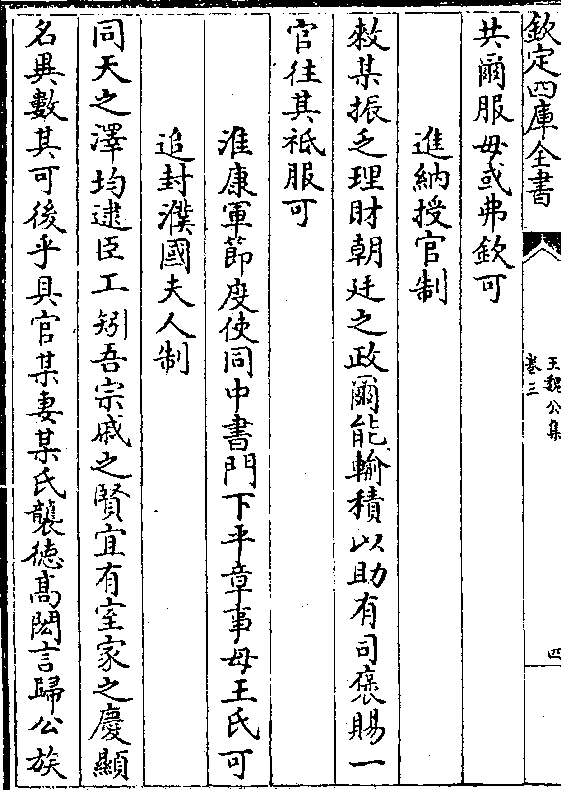 欽定四庫全書
王魏公集
卷三
四
共爾服毋或弗欽可
進納授官制
敕某振乏理財朝廷之政爾能輸積以助有司褒賜一
官往其祗服可
淮康軍節度使同中書門下平章事母王氏可
追封濮國夫人制
同天之澤均逮臣工矧吾宗戚之賢宜有室家之慶顯
名異數其可後乎具官某妻某氏襲徳髙閎言歸公族